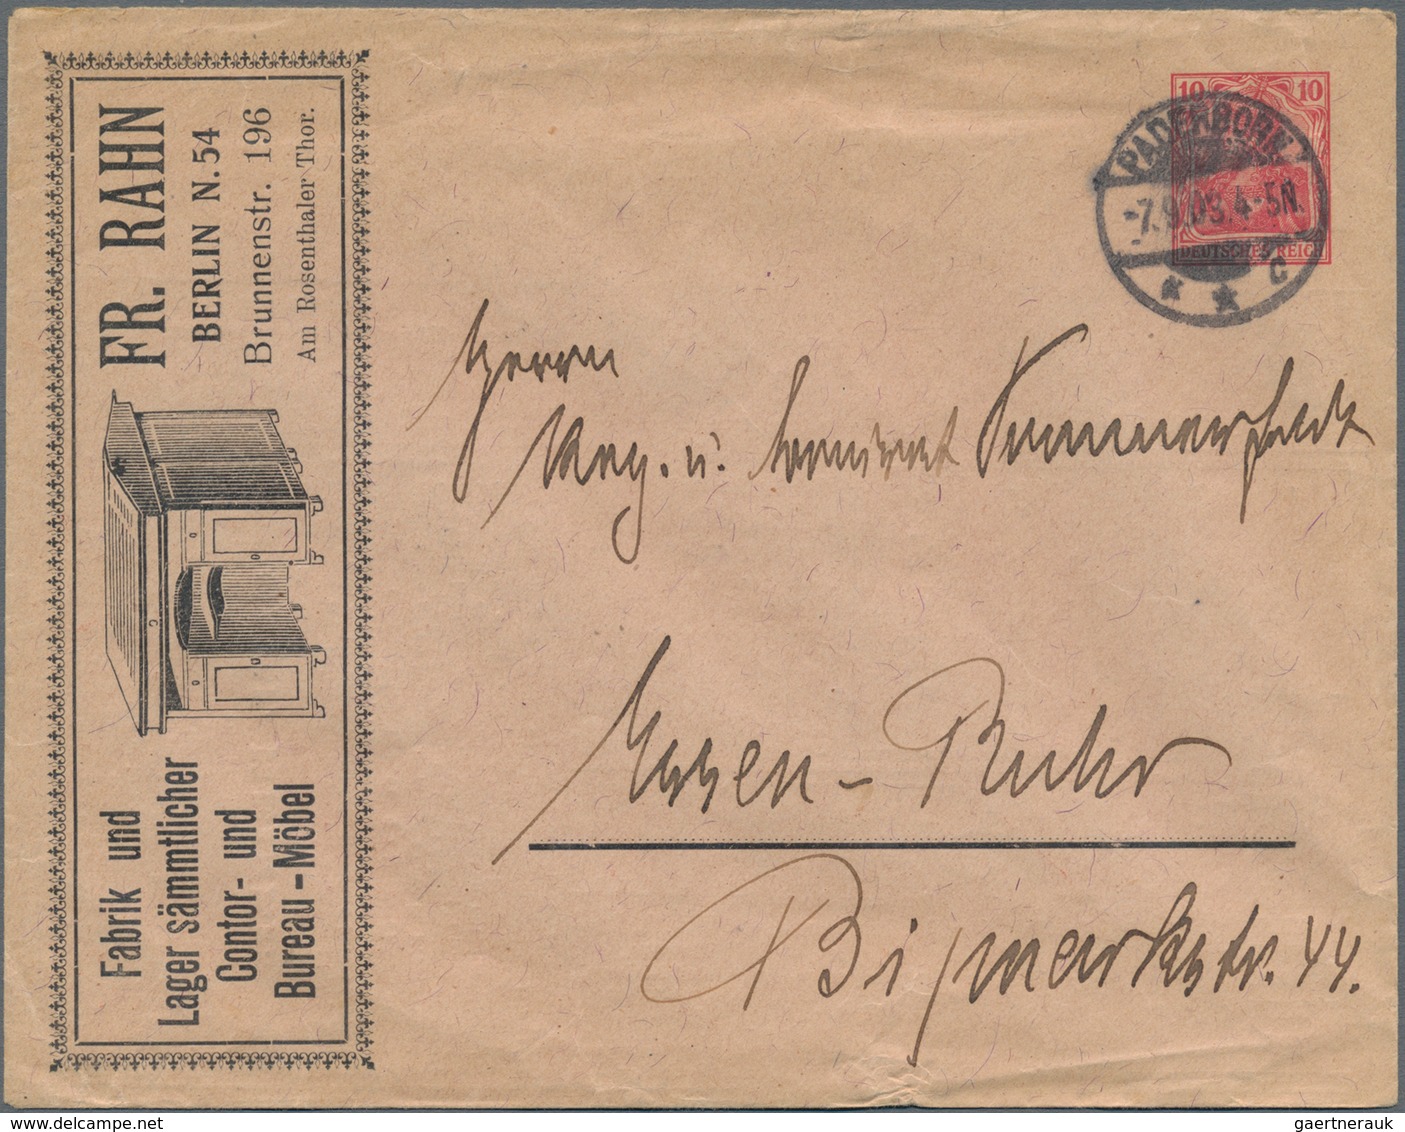 FR. RAHN
BERLIN N. 54
Brunnenstr. 196
Am Rosenthaler Thor.
Fabrik und
Lager sämmtlicher
Contor- und
Bureau-Möbel
10 10
DEUTSCHES REICH
PADERBORN
-7.9.03.4-5N.
* * C
Herrn
Reg. u. Sommerfeldt
Essen-Ruhr
Bismarkstr. 44.
gaertnerauk